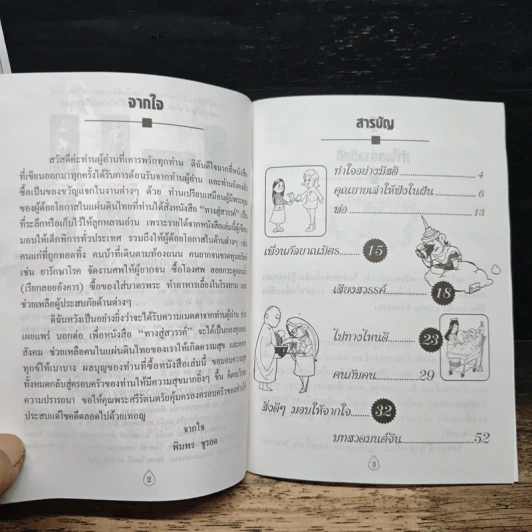 จากใจ
สวัสดีค่ะท่านผู้อ่านที่เคารพรักทุกท่าน ดิฉันดีใจมากที่หนังสือ
ที่เขียนออกมาทุกครั้งได้รับการต้อนรับจากท่านผู้อ่าน และท่านยังคง
ซื้อเป็นของขวัญแจกในงานต่างๆ ด้วย ท่านเปรียบเสมือนผู้มีพระคุณ
ของผู้ด้อยโอกาสในแผ่นดินไทยที่ท่านได้สั่งหนังสือ "ทางสู่สวรรค์" เป็น
ที่ระลึกหรือเก็บไว้ให้ลูกหลานอ่าน เพราะรายได้จากหนังสือเล่มนี้
มอบให้เด็กพิการทั่วประเทศ รวมถึงให้ผู้ด้อยโอกาสในด้านต่างๆ เช่น
คนแก่ที่ถูกทอดทิ้ง คนบ้าที่เดินตามท้องถนน คนยากจนขาดทุนทรัพย์
เช่น ยารักษาโรค จัดงานศพให้ผู้ยากจน ซื้อโลงศพ ลอยกระดูก
(เรียกลอยอังคาร) ซื้อของใส่บาตรพระ ทำอาหารเลี้ยงในโรงทาน และ
ช่วยเหลือผู้ประสบภัยด้านต่างๆ
ดิฉันหวังเป็นอย่างยิ่งว่าจะได้รับความเมตตาจากท่านผู้อ่าน ช่วย
เผยแพร่ บอกต่อ เพื่อหนังสือ "ทางสู่สวรรค์" จะได้เป็นกองทุน
สังคม ช่วยเหลือคนในแผ่นดินไทยของเราให้เกิดความสุข และ
ทุกข์ให้เบาบาง ผลบุญของท่านที่ซื้อหนังสือเล่มนี้ ขอมอบความสุข
ทั้งหมดกลับสู่ครอบครัวของท่านให้มีความสุขมากยิ่งๆ ขึ้น คิดอะไรสม
ความปรารถนา ขอให้คุณพระศรีรัตนตรัยคุ้มครองครอบครัวของท่านให้
ประสบแต่โชคดีตลอดไปด้วยเทอญ
จากใจ
พิมพร ชูรอด
2
สารบัญ
ทำใจอย่างมีสติ 4
คุณยายเล่าให้ฟังในฝัน 6
พ่อ 13
เพื่อนกัลยาณมิตร 15
เสียงสวรรค์ 18
ไปทางไหนดี 23
คนกับคน 29
สิ่งดีๆ มอบให้จากใจ 32
บทสวดมนต์จีน 52
3